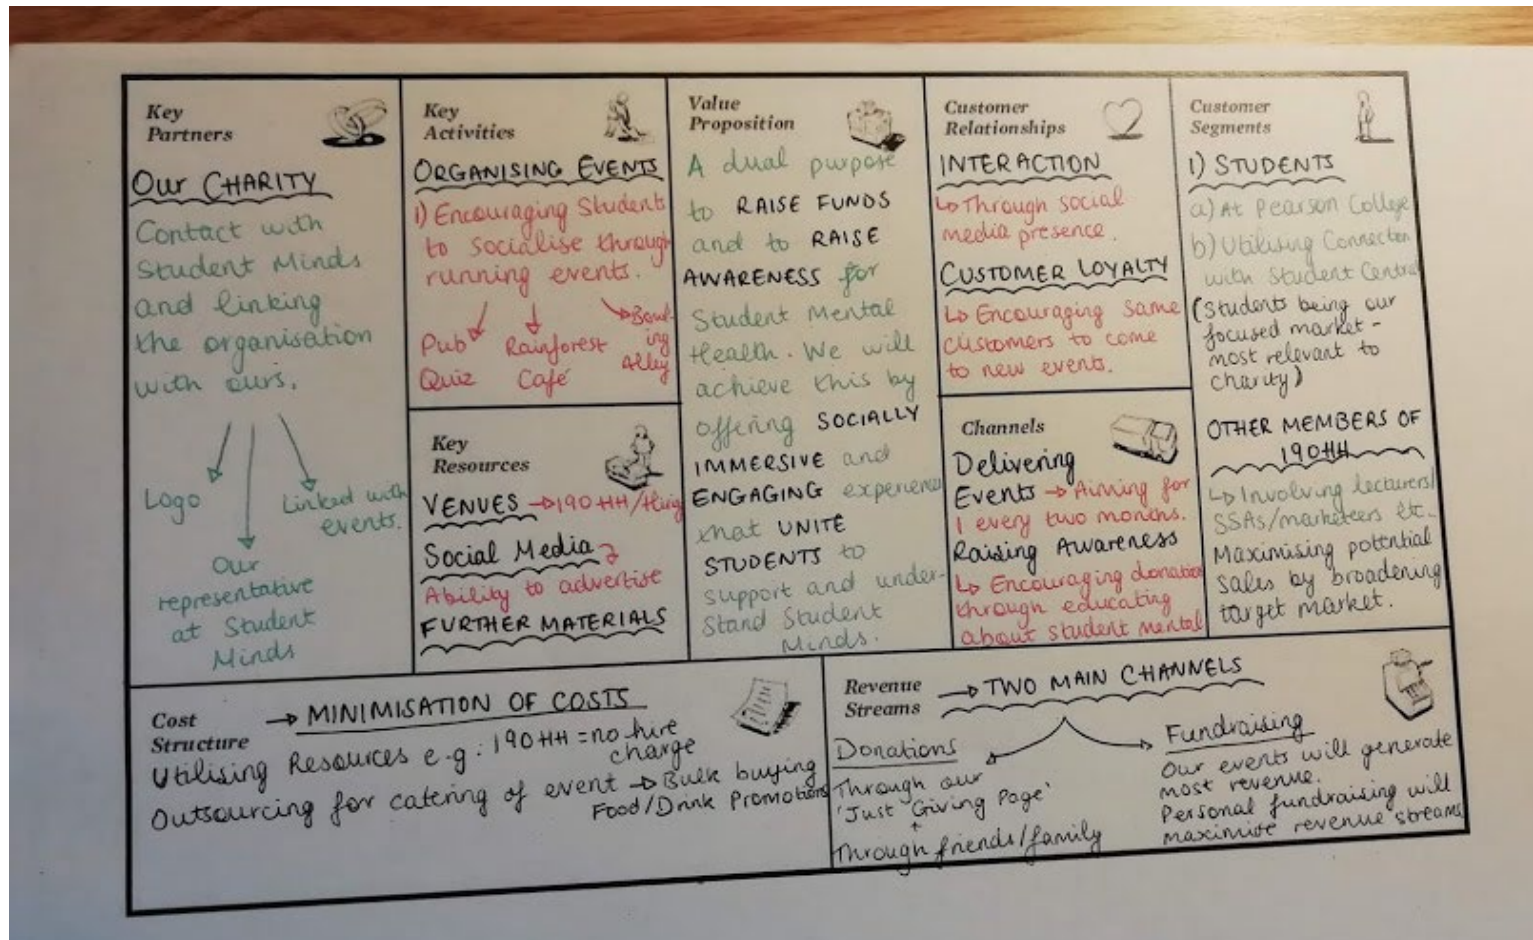 Key
Partners
OUR CHARITY
Contact with
Student Minds
and linking
the organisation
with ours.
Logo
Linked with
events.
Our
representative
at Student
Minds
Key
Activities
ORGANISING EVENTS
1) Encouraging Students
to socialise through
running events.
Pub
Quiz
Rainforest
Café
Bowl-
ing
Alley
Key
Resources
VENUES → 190HH/Hiring
Social Media
Ability to advertise
FURTHER MATERIALS
Value
Proposition
A dual purpose
to RAISE FUNDS
and to RAISE
AWARENESS for
Student Mental
Health. We will
achieve this by
offering SOCIALLY
IMMERSIVE and
ENGAGING experience
that UNITE
STUDENTS to
support and under-
stand Student
Minds.
Customer
Relationships
INTERACTION
↳ Through social
media presence.
CUSTOMER LOYALTY
↳ Encouraging same
customers to come
to new events.
Channels
Delivering
Events → Aiming for
1 every two months.
Raising Awareness
↳ Encouraging donation
through educating
about student mental
Customer
Segments
1) STUDENTS
a) At Pearson College
b) Utilising Connection
with Student Central
(Students being our
focused market -
most relevant to
charity)
OTHER MEMBERS OF
190HH
↳ Involving lecturers/
SSAs/marketeers etc.
Maximising potential
sales by broadening
target market.
Cost
Structure
→ MINIMISATION OF COSTS
Utilising Resources e.g: 190HH = no hire
charge
Outsourcing for catering of event → Bulk buying
Food/Drink Promotions
Revenue
Streams
→ TWO MAIN CHANNELS
Donations
Through our
'Just Giving Page'
+
Through friends/family
Fundraising
Our events will generate
most revenue.
Personal fundraising will
maximise revenue streams